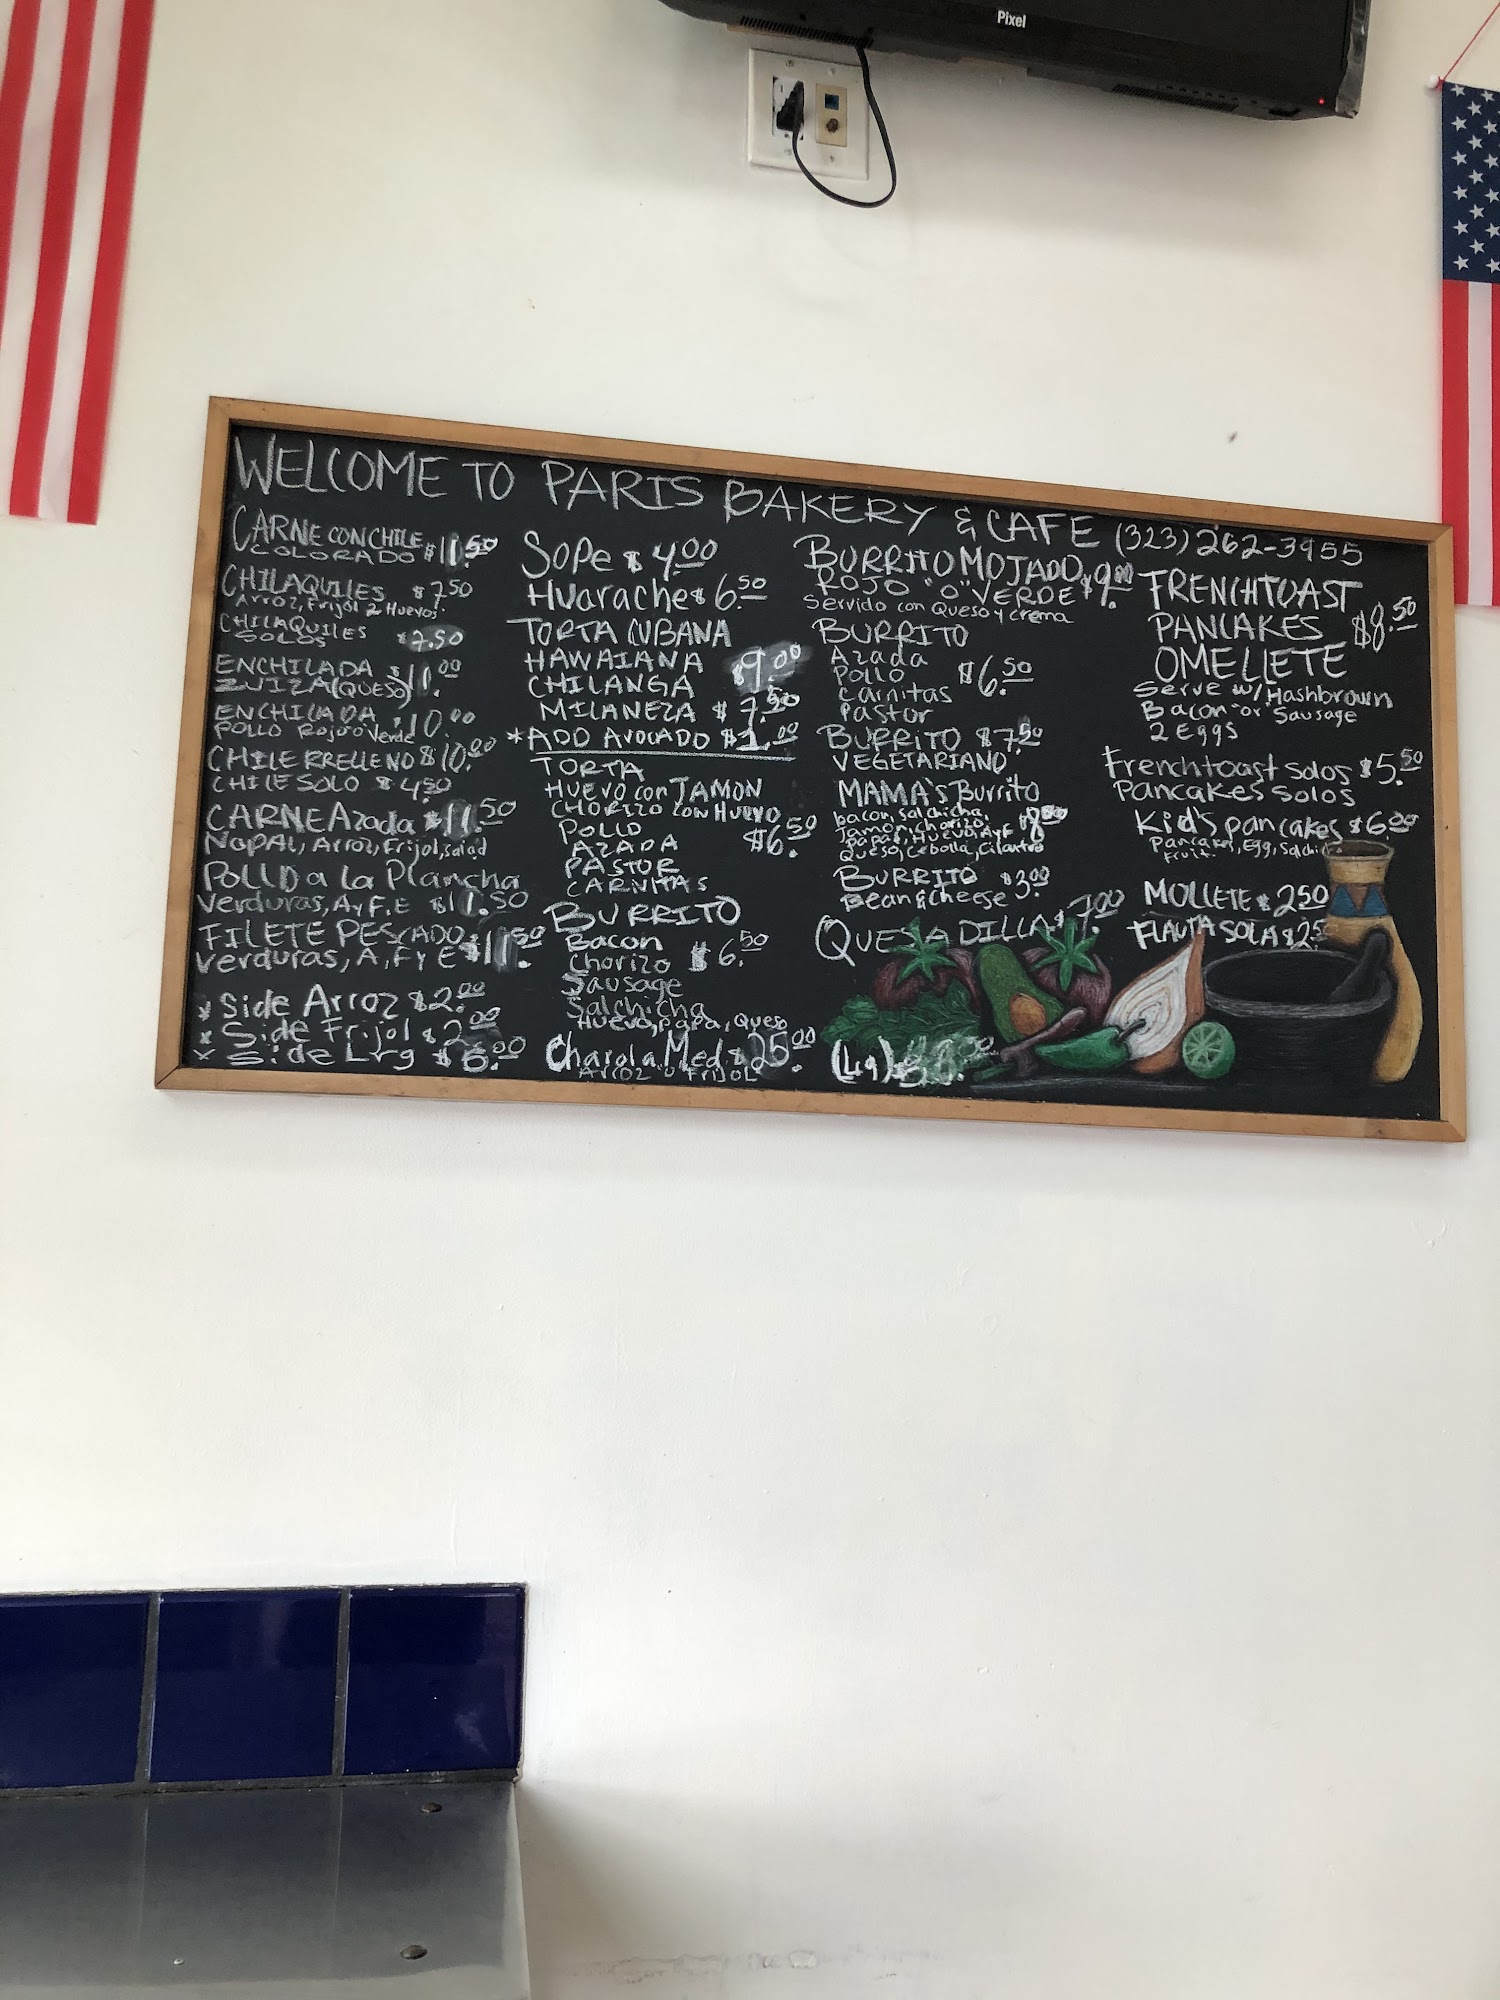 Pixel
WELCOME TO PARIS BAKERY & CAFE (323) 262-3955
CARNE CON CHILE
COLORADO $11.50
CHILAQUILES $7.50
Arroz, Frijol 2 Huevos
CHILAQUILES
SOLOS $7.50
ENCHILADA $11.00
ZUIZA (QUESO)
ENCHILADA $10.00
POLLO Rojo o Verde
CHILE RRELLENO $10.00
CHILE SOLO $4.50
CARNE Azada $11.50
Nopal, Arroz, Frijol, Salad
POLLO a la Plancha
Verduras, A y F. E $11.50
FILETE PESCADO $11.50
Verduras, A, F Y E
x Side Arroz $2.00
x Side Frijol $2.00
x Side Lrg $6.00
Sope $4.00
Huarache $6.50
TORTA CUBANA
HAWAIANA $9.00
CHILANGA
MILANEZA $7.50
*ADD AVOCADO $1.00
TORTA
HUEVO con JAMON
CHORIZO con HUEVO
POLLO $6.50
AZADA
PASTOR
CARNITAS
BURRITO
Bacon $6.50
Chorizo
Sausage
Salchicha
Huevo, papa, Queso
Charola Med $25.00 (Lg)
Arroz o Frijol
BURRITO MOJADO $9.00
ROJO "O" VERDE
Servido con Queso y crema
BURRITO
Azada $6.50
Pollo
Carnitas
Pastor
BURRITO $7.50
VEGETARIANO
MAMA'S Burrito
bacon, salchicha,
Jamon, chorizo,
papas, Huevo, AyF
Queso, Cebolla, Cilantro
BURRITO $3.00
Bean & cheese
QUESADILLA $7.00
FRENCHTOAST
PANCAKES $8.50
OMELLETE
Serve w/ Hashbrown
Bacon or Sausage
2 Eggs
Frenchtoast Solos $5.50
Pancakes Solos
Kid's pancakes $6.00
Pancakes, Egg, Salchicha
Fruit.
MOLLETE $2.50
FLAUTA SOLA $2.50